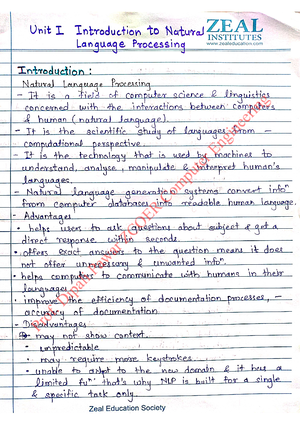 ZEAL
INSTITUTES
www.zealeducation.com
Unit I Introduction to Natural
Language Processing
Introduction :
Natural Language Processing
- It is a field of computer science & linguistics
concerned with the interactions between computers
& human (natural language).
- It is the scientific study of languages from -
computational perspective.
- It is the technology that is used by machines to
understand, analyse, manipulate & interpret human's
languages.
- Natural language generation systems convert infoⁿ
from computer databases into readable human language.
- Advantages
• helps users to ask questions about subject & get a
direct response within seconds.
• offers exact answers to the question means it does
not offer unnecessary & unwanted infoⁿ.
• helps computers to communicate with humans in their
languages.
• improve the efficiency of documentation processes, -
accuracy of documentation
- Disadvantages
• may not show context.
- unpredictable
• may require more keystrokes.
• unable to adapt to the new domain & it has a
limited fuⁿ that's why NLP is built for a single
& specific task only.
Zeal Education Society